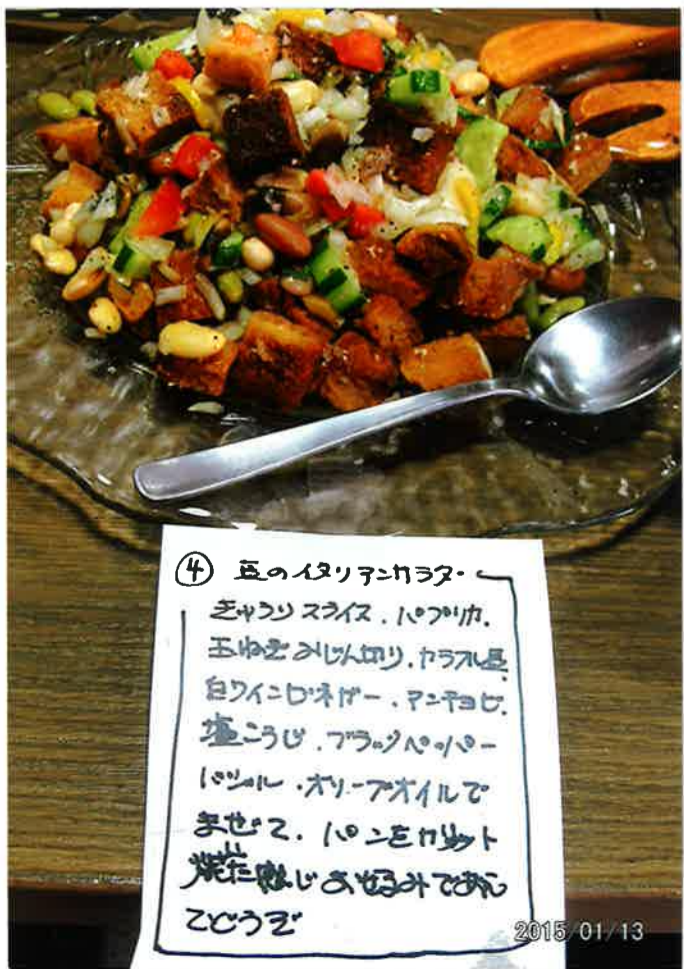 ④ 豆のイタリアンサラダ・
きゅうりスライス、パプリカ、
玉ねぎみじん切り、カラフル豆、
白ワインビネガー、アンチョビ、
塩こうじ、ブラックペッパー
バジル・オリーブオイルで
まぜて、パンをカリット
焼た感じ
てどうぞ
2015/01/13